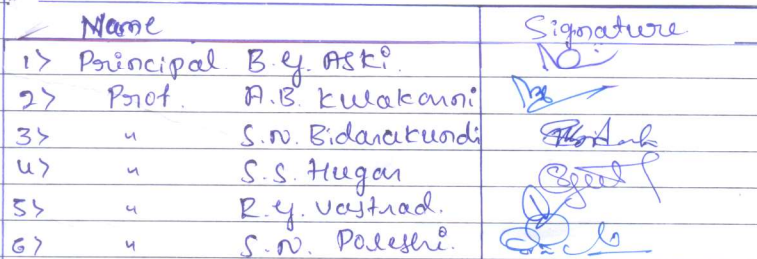 Name Signature
1> Principal B.Y. Aski.
2> Prof. A.B. Kulakarni
3> " S.N. Bidarakundi
4> " S.S. Hugar
5> " R.Y. Vastrad.
6> " S.N. Poleshi.